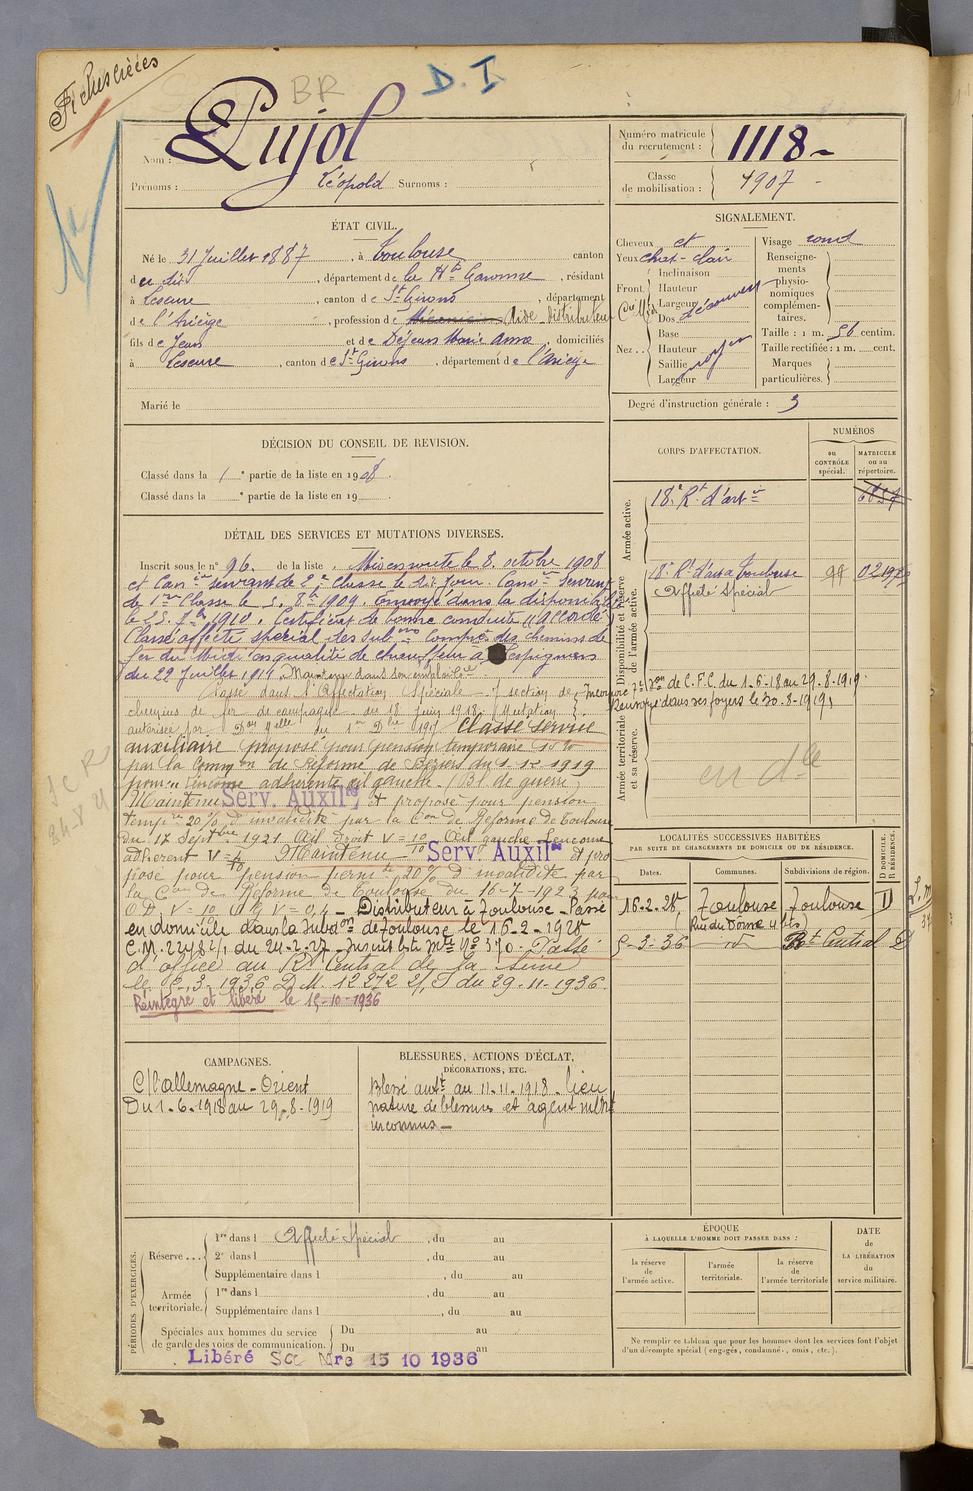 BR
D. I.
Nom : Pujol
Prénoms : Léopold Surnoms :
Numéro matricule du recrutement : 1118
Classe de mobilisation : 1907
ÉTAT CIVIL.
Né le 31 Juillet 1887, à Toulouse canton
du dit, département de la Hte Garonne, résidant
à Lescure, canton de St Girons, département
de l'Ariège, profession de Aide-distributeur
fils de Jean et de Dejean Marie Anna, domiciliés
à Lescure, canton de St Girons, département de l'Ariège
Marié le
SIGNALEMENT.
Cheveux ct
Yeux chat-clair
Front
Inclinaison
Hauteur
Largeur
Nez
Dos
Base
Hauteur
Saillie
Largeur
moyen
Visage rond
Renseignements physionomiques complémentaires.
Taille : 1 m. 56 centim.
Taille rectifiée : 1 m. cent.
Marques particulières.
Degré d'instruction générale : 3
DÉCISION DU CONSEIL DE REVISION.
Classé dans la 1e partie de la liste en 1908.
Classé dans la e partie de la liste en 19
CORPS D'AFFECTATION.
NUMÉROS
au CONTRÔLE spécial.
MATRICULE ou au répertoire.
Armée active.
18e Rt d'artie
Disponibilité et réserve de l'armée active.
18e Rt d'art à Toulouse
Affecté Spécial
Armée territoriale et sa réserve.
DÉTAIL DES SERVICES ET MUTATIONS DIVERSES.
Inscrit sous le n° 96. de la liste. Mis en route le 8 octobre 1908
et Canier servant de 2e classe le dit jour. Canier servant
de 1re Classe le 8bre 1909. Envoyé dans la disponibilité
le 25 7bre 1910. Certificat de bonne conduite "Accordé"
Classé affecté spécial des subons Compie des chemins de
fer du Midi en qualité de chauffeur à Lespignan
du 29 Juillet 1914. Maintenu dans son emploi
Classé dans l'Affectation Spéciale 7e section de
chemins de fer de campagne du 18 juin 1918. Mutation
Incorporé 7e Son de C.F.C. du 1-6-18 au 29-8-1919.
Renvoyé dans ses foyers le 30-8-1919
Classé service
auxiliaire proposé pour pension temporaire 10%
par la Common de Réforme de Béziers du 1-12-1919
pour leucome adhérente œil gauche (Bl de guerre)
Maintenu Serv. Auxilre Et proposé pour pension
tempre 20% d'invalidité par la Con de Réforme de Toulouse
du 17 Septbre 1921. Œil droit V = 10 Œil gauche Leucome
adhérent V = 4/10 Maintenu Serv. Auxilre et pro
posé pour pension permte 20% d'invalidité par
la Con de Réforme de Toulouse du 16-7-1923 pour
O D, V = 10 O G V = 0,4 - Distributeur à Toulouse - Passé
en domicile dans la Subdon de Toulouse le 16-2-1928
Passé
d'office au Rt Central de la Seine
le 5-3-1936 D.M. 12372 du 29-11-1936.
Réintégré et libéré le 15-10-1936
en dlle
LOCALITÉS SUCCESSIVES HABITÉES
PAR SUITE DE CHANGEMENTS DE DOMICILE OU DE RÉSIDENCE.
Dates. Communes. Subdivisions de région. D DOMICILE. R RÉSIDENCE.
16-2-28 Toulouse Toulouse D
5-3-36 id Rt Central D
CAMPAGNES.
C/l'allemagne - Orient
Du 1-6-1918 au 29-8-1919
BLESSURES, ACTIONS D'ÉCLAT,
DÉCORATIONS, ETC.
Blessé antt au 11-11-1918 - lieu
nature de blessures et agent vulnt
inconnus -
PÉRIODES D'EXERCICES.
Réserve...
1re dans l Affecté Spécial, du au
2e dans l , du au
Supplémentaire dans l , du au
Armée territoriale.
1re dans l , du au
Supplémentaire dans l , du au
Spéciales aux hommes du service de garde des voies de communication.
Du au
Du au
Libéré Sce Mre 15 10 1936
ÉPOQUE
À LAQUELLE L'HOMME DOIT PASSER DANS :
la réserve de l'armée active.
l'armée territoriale.
la réserve de l'armée territoriale
DATE de LA LIBÉRATION du service militaire.
Ne remplir ce tableau que pour les hommes dont les services font l'objet
d'un décompte spécial (engagés, condamné, omis, etc.).